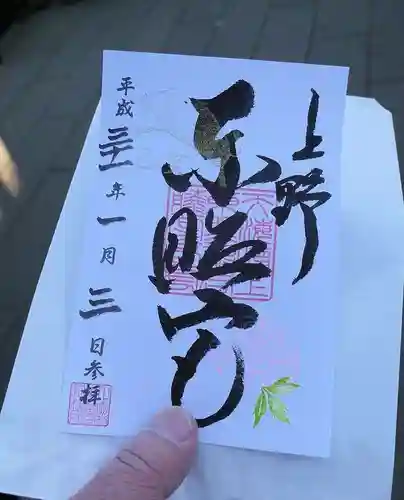 上野
東照宮
平成三十一年一月三日参拝